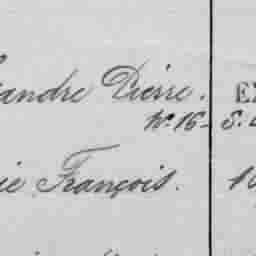 andre Pierre.
No. 16 - S.
ie François.